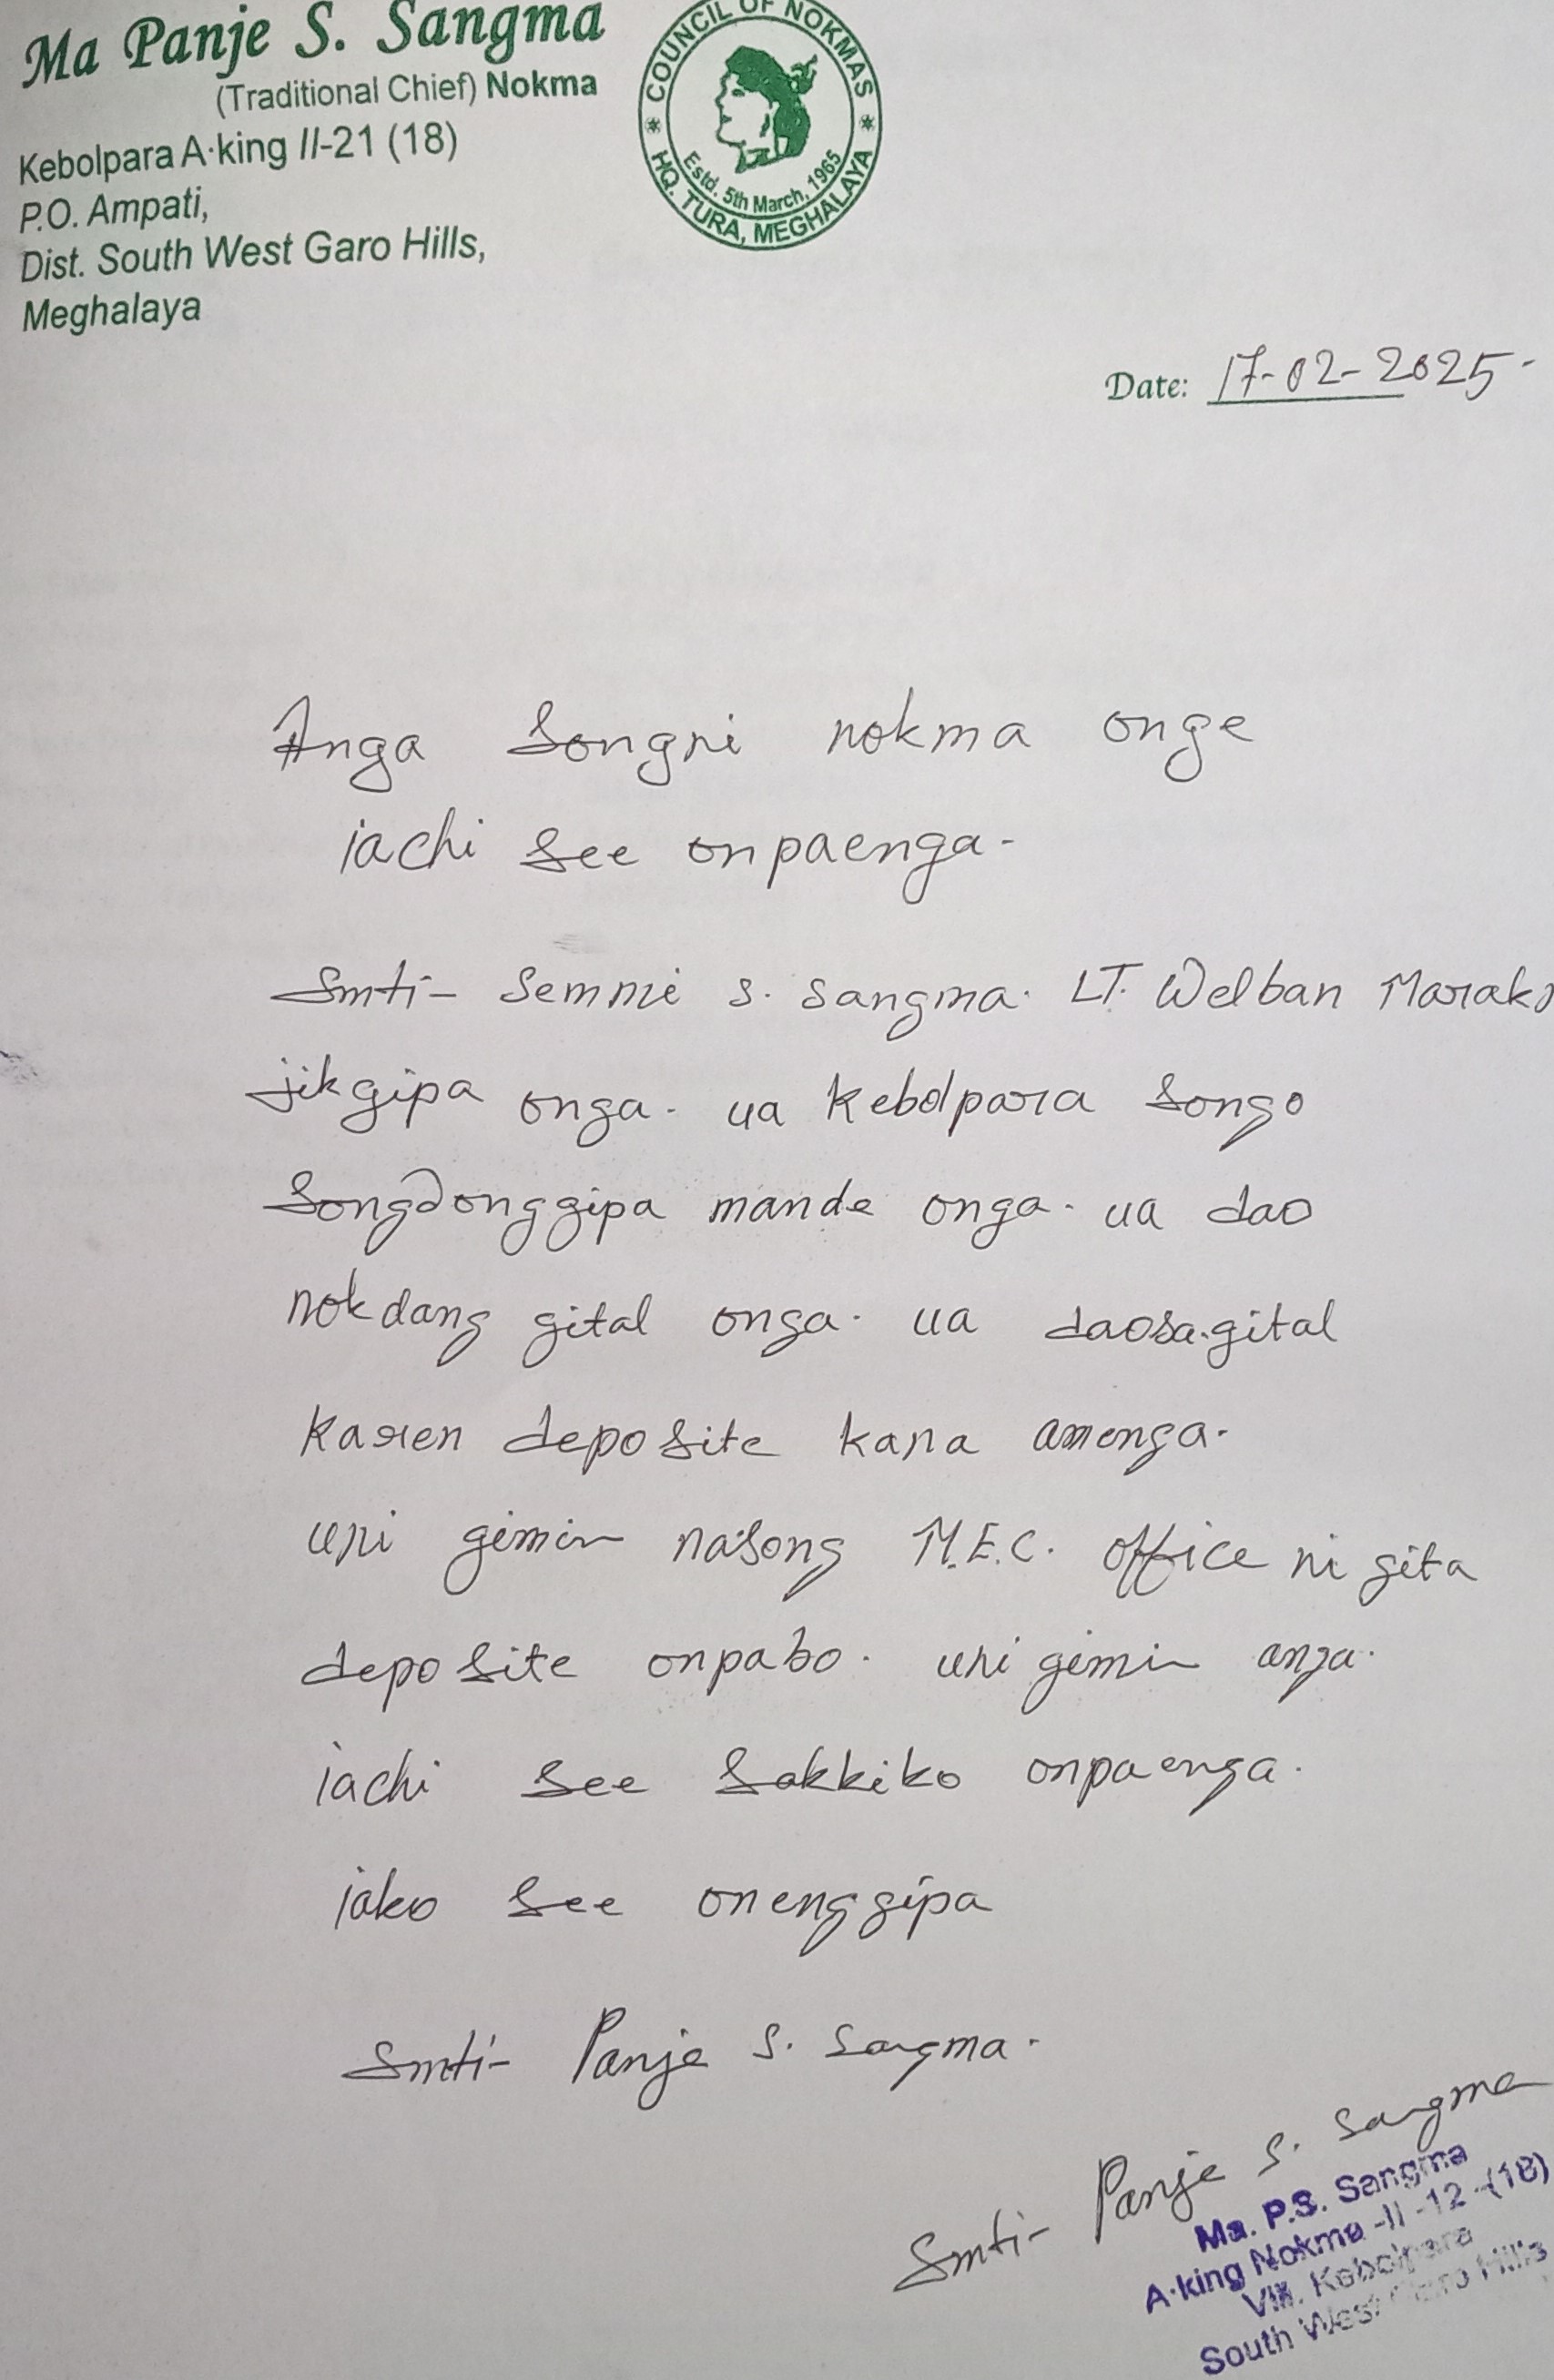 Ma Panje S. Sangma
(Traditional Chief) Nokma
Kebolpara A·king II-21 (18)
P.O. Ampati,
Dist. South West Garo Hills,
Meghalaya
COUNCIL OF NOKMAS
Estd. 5th March, 1965
HQ. TURA, MEGHALAYA
Date: 17-02-2025-
Anga Songni nokma onge
iachi see onpaenga-
Smti- Semmi s. sangma. LT. Welban Marakni
jikgipa onga. ua kebolpara songo
Songdonggipa mande onga. ua dao
nokdang gital onga. ua daosa.gital
karen deposite kana amenga.
uni gimin na'song M.E.C. office ni gita
deposite onpabo. uni gimin anga.
iachi see sakkiko onpaenga.
iako see onenggipa
Smti- Panje S. Sangma.
Smti- Panje S. Sangma
Ma. P.S. Sangma
A·king Nokma -II -12 -(18)
Vill. Kebolpara
South West Garo Hills